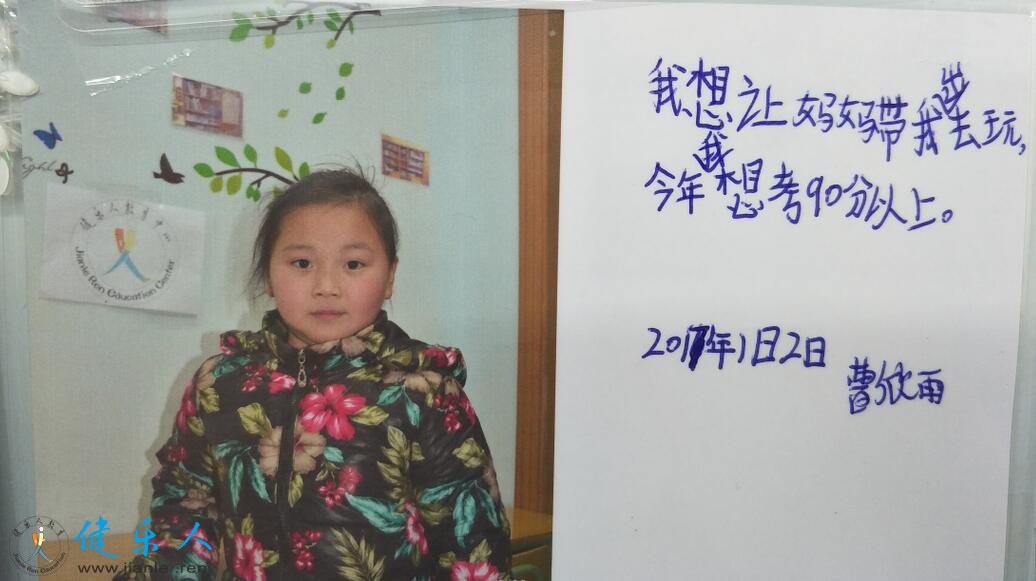 我想让妈妈带我出去玩,
今年我想考90分以上。
2017年1日2日
曹欣雨
健乐人教育中心
Jianle Ren Education Center
健乐人
www.jianle.ren